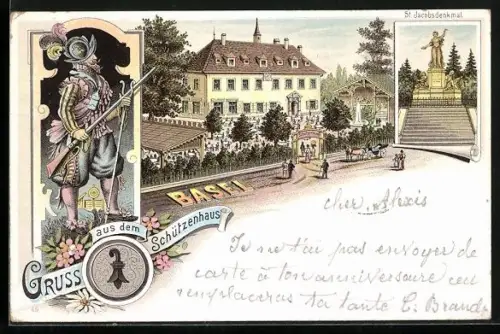 St. Jacobsdenkmal.
BASEL
GRUSS aus dem Schützenhaus
cher Alexis
Je ne t'ai pas envoyer de
carte à ton anniversaire
remplaceras ta tante C. Brand